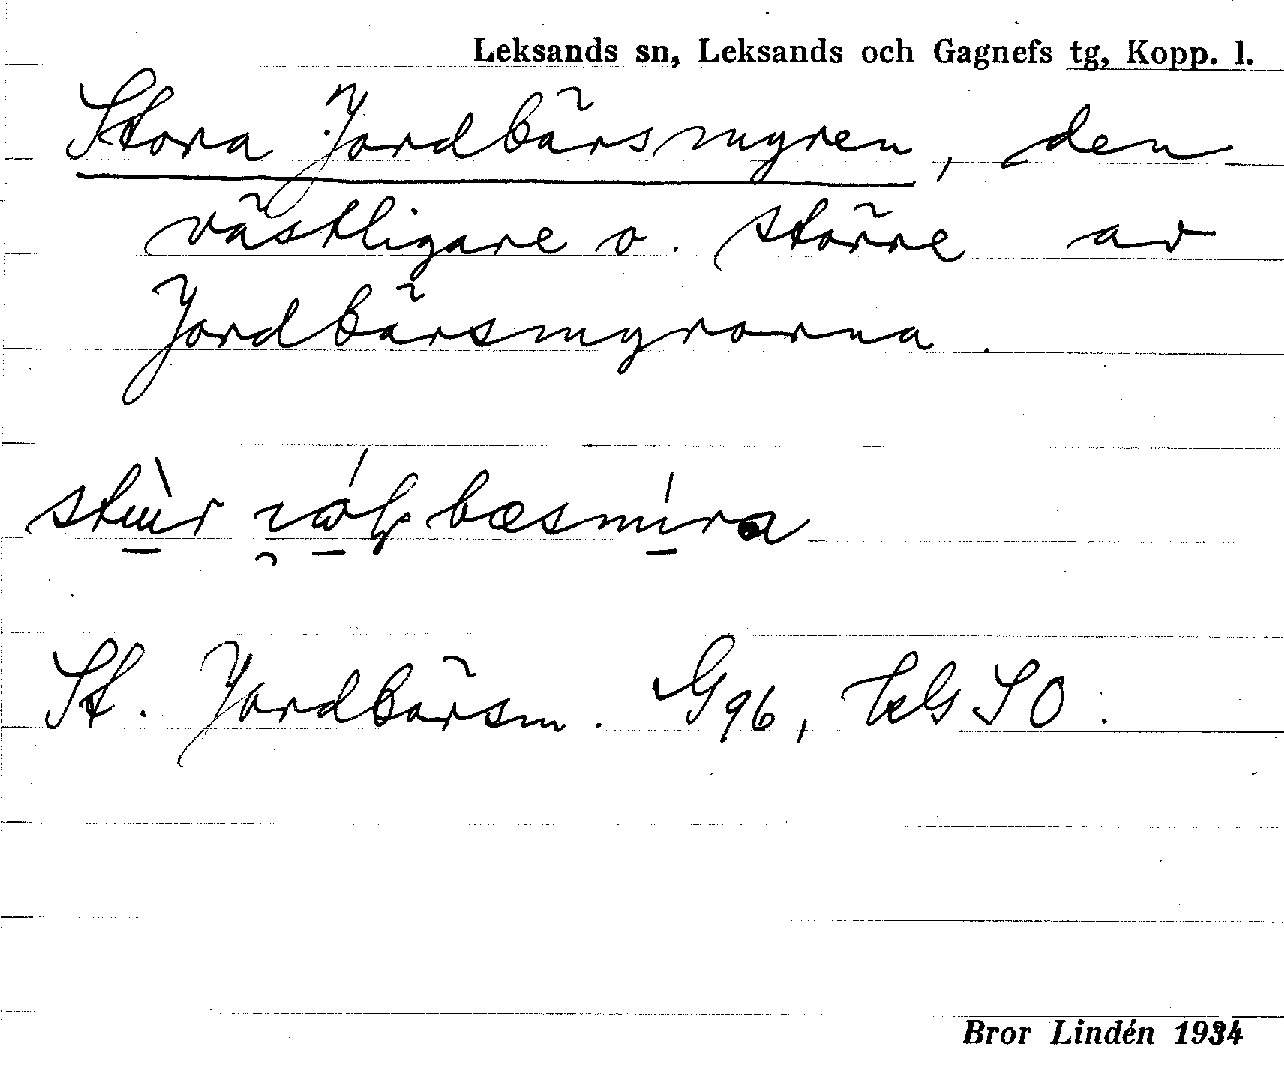 Leksands sn, Leksands och Gagnefs tg, Kopp. l.
Stora Jordbärsmyren, den
västligare o. större av
Jordbärsmyrarna.
St. Jordbärsm. G96, kls SO.
Bror Lindén 1934